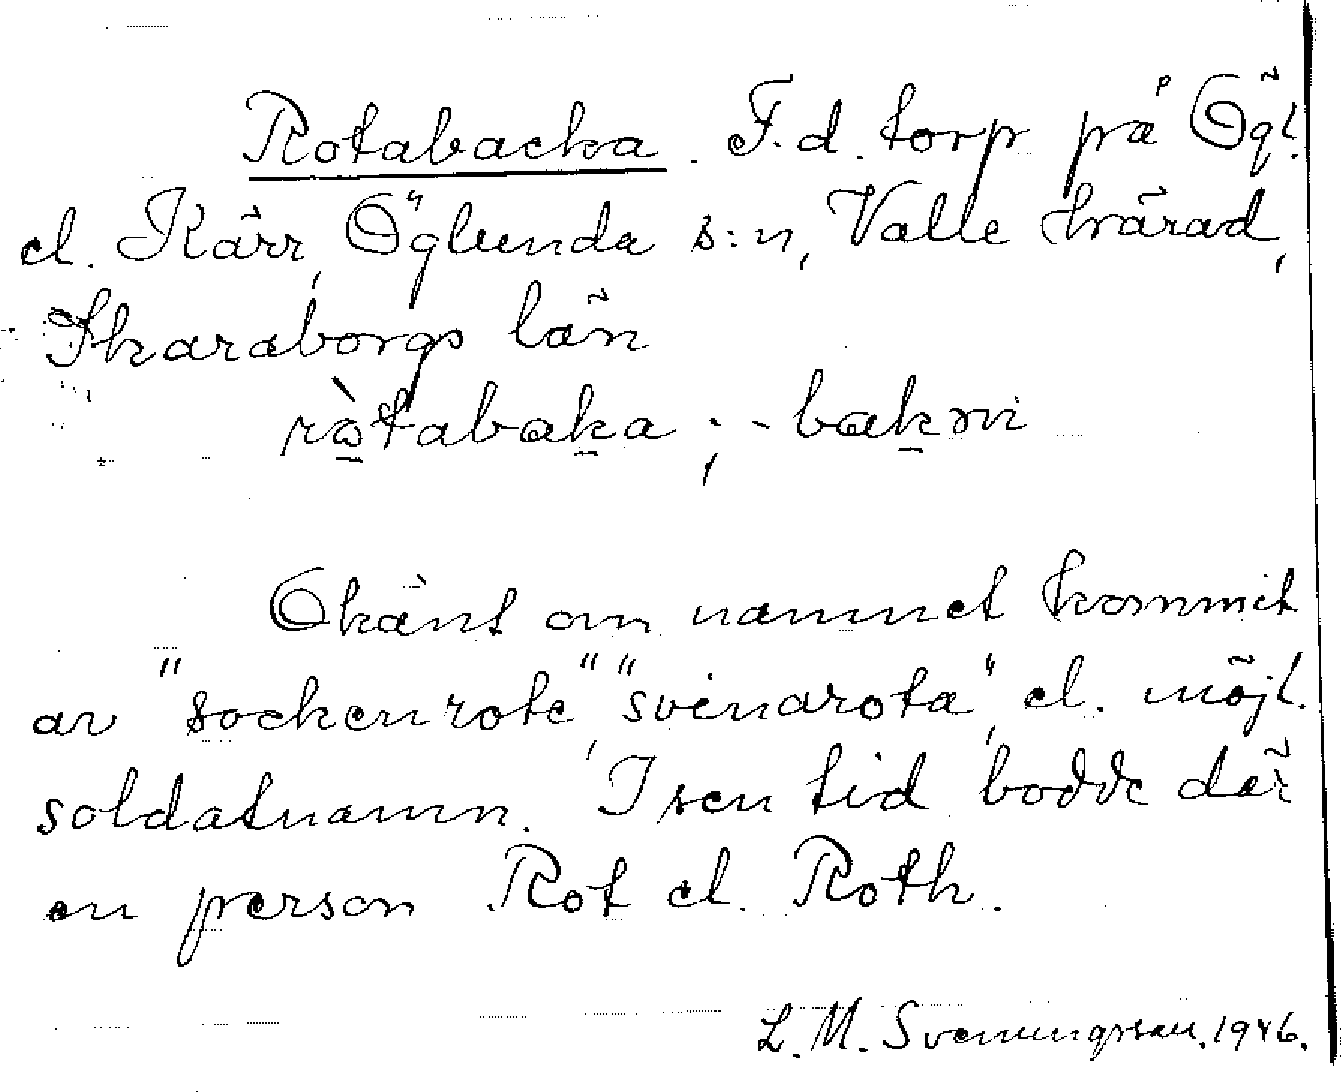 Rotabacka. F.d. torp på Ögl.
el. Kärr, Öglunda s:n, Valle härad,
Skaraborgs län
rò̱tabaḵa ; -baḵɷn
Okänt om namnet kommit
av "sockenrote", "svinarota", el. möjl.
soldatnamn. I sen tid bodde där
en person Rot el. Roth.
L. M. Svenungsson. 1946.